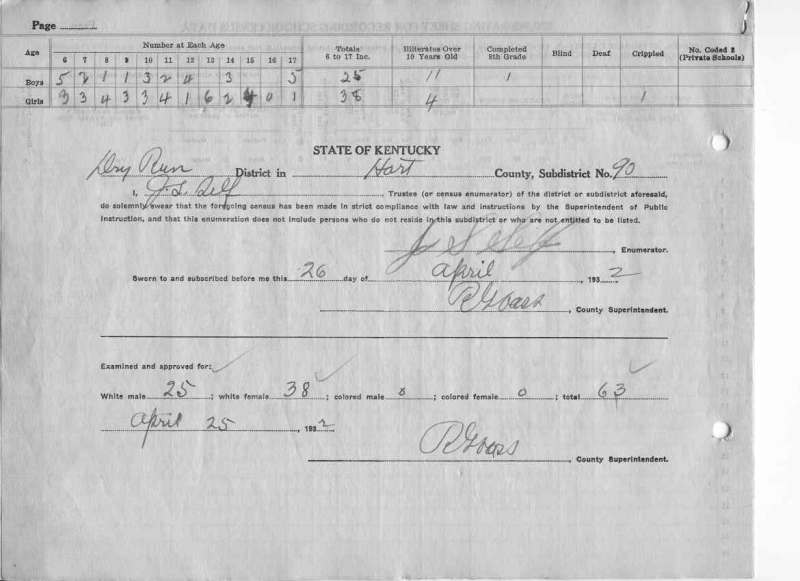 Page
Age Number at Each Age Totals 6 to 17 Inc. Illiterates Over 10 Years Old Completed 8th Grade Blind Deaf Crippled No. Coded 2 (Private Schools)
6 7 8 9 10 11 12 13 14 15 16 17
Boys 5 2 1 1 3 2 4 3 5 25 11 1
Girls 3 3 4 3 3 4 1 6 2 4 0 1 38 4 1
STATE OF KENTUCKY
Dry Run District in Hart County, Subdistrict No. 90
I, J. L. Self, Trustee (or census enumerator) of the district or subdistrict aforesaid,
do solemnly swear that the foregoing census has been made in strict compliance with law and instructions by the Superintendent of Public
Instruction, and that this enumeration does not include persons who do not reside in this subdistrict or who are not entitled to be listed.
Self, Enumerator.
Sworn to and subscribed before me this 26 day of April, 1932
, County Superintendent.
Examined and approved for:
White male 25; white female 38; colored male 0; colored female 0; total 63
April 25, 1932
, County Superintendent.